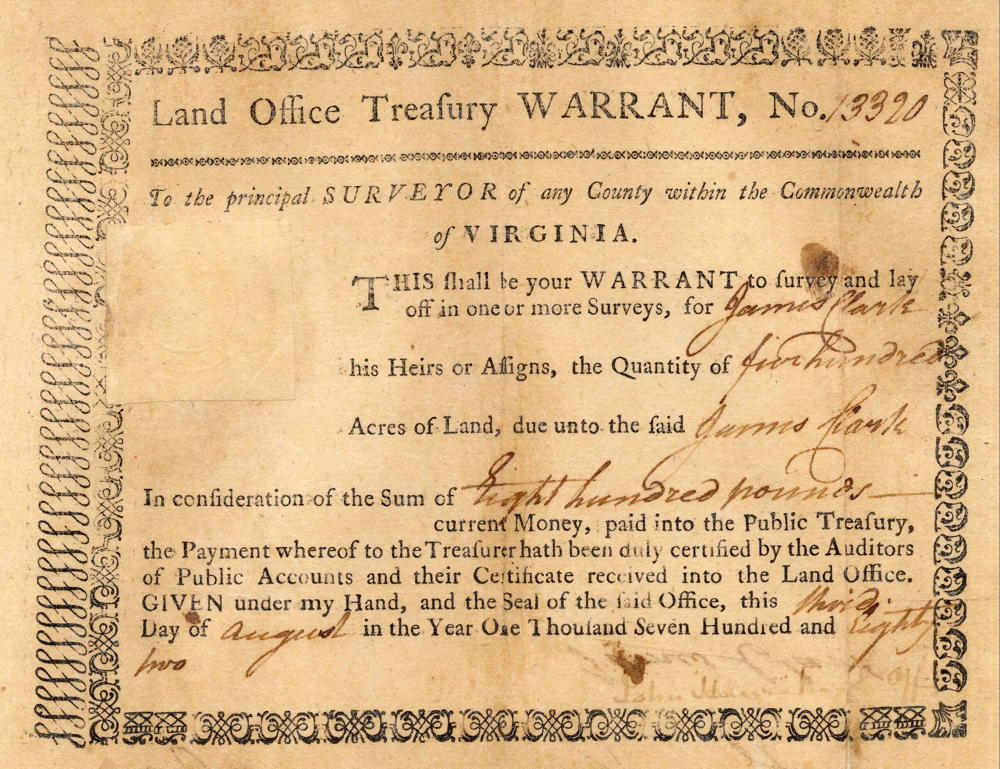 Land Office Treaſury WARRANT, No. 13320
To the principal SURVEYOR of any County within the Commonwealth
of VIRGINIA.
THIS ſhall be your WARRANT to survey and lay
off in one or more Surveys, for James Clark
his Heirs or Aſſigns, the Quantity of five hundred
Acres of Land, due unto the ſaid James Clark
In conſideration of the Sum of Eight hundred pounds
current Money, paid into the Public Treaſury,
the Payment whereof to the Treaſurer hath been duly certified by the Auditors
of Public Accounts and their Certificate received into the Land Office.
GIVEN under my Hand, and the Seal of the ſaid Office, this third
Day of August in the Year One Thouſand Seven Hundred and Eighty
two